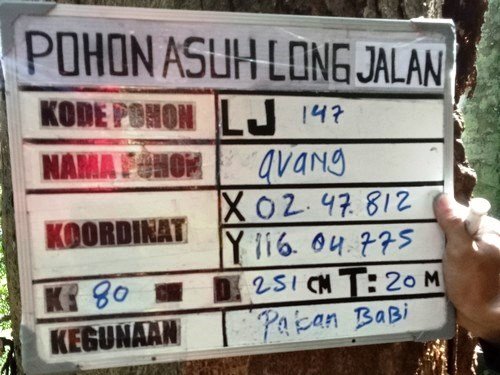 POHON ASUH LONG JALAN
KODE POHON LJ 147
NAMA POHON avang
KOORDINAT X 02.47.812
Y 116.04.775
K: 80 CM D: 251 CM T: 20 M
KEGUNAAN Pakan BaBi